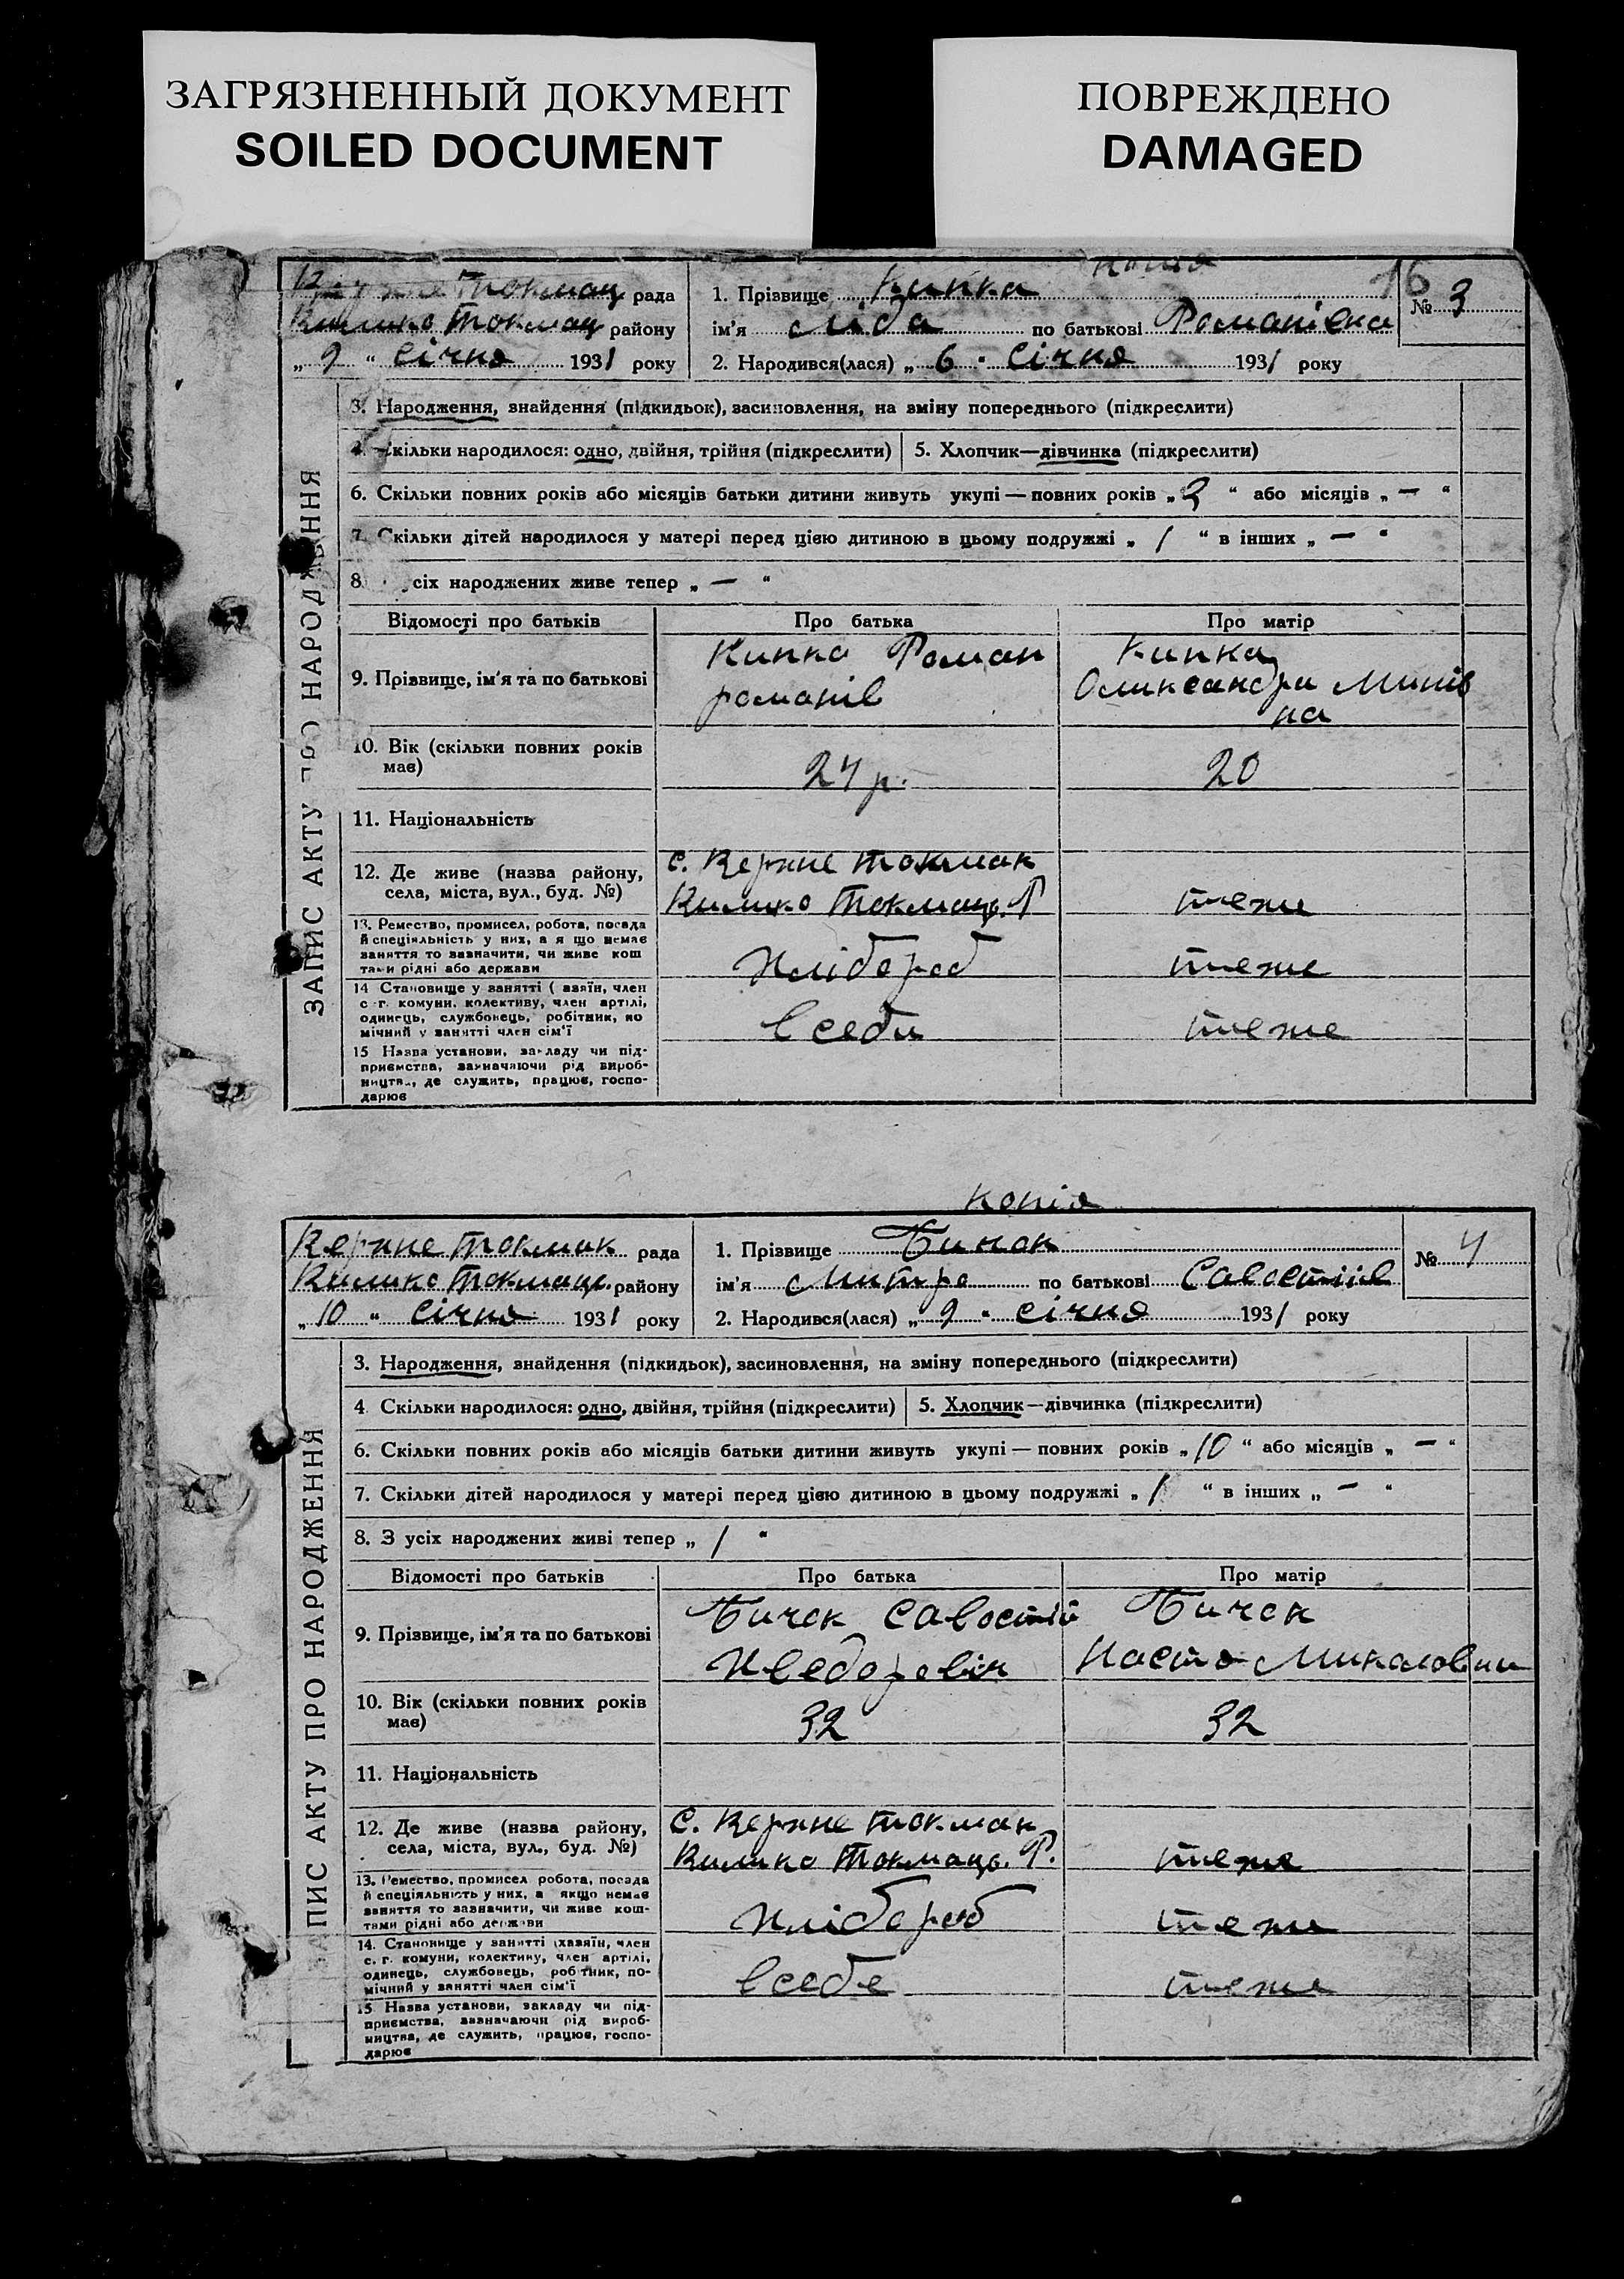 ЗАГРЯЗНЕННЫЙ ДОКУМЕНТ
SOILED DOCUMENT
ПОВРЕЖДЕНО
DAMAGED
копія
16
Токмац рада
Вилико Токмац району
„ 9 “ січня 1931 року
1. Прізвище Кипка
ім'я Ліда по батькові Романівна
2. Народився(лася) „ 6 " Січня 1931 року
№ 3
ЗАПИС АКТУ ПРО НАРОДЖЕННЯ
3. Народження, знайдення (підкидьок), засиновлення, на зміну попереднього (підкреслити)
4. Скільки народилося: одно, двійня, трійня (підкреслити)
5. Хлопчик—дівчинка (підкреслити)
6. Скільки повних років або місяців батьки дитини живуть укупі — повних років „ 3 “ або місяців „ — “
7. Скільки дітей народилося у матері перед цією дитиною в цьому подружжі „ 1 “ в інших „ — “
8. усіх народжених живе тепер „ — “
Відомості про батьків
Про батька
Про матір
9. Прізвище, ім'я та по батькові
Кипка Роман
романів
Кипка
Олександри Минів
на
10. Вік (скільки повних років
має)
24 р.
20
11. Національність
12. Де живе (назва району,
села, міста, вул., буд. №)
с. Верхне Токмак
Вилико Токмацъ. Р
теж
13. Ремество, промисел, робота, посада
й спеціяльність у них, а я що немає
заняття то зазначити, чи живе кош
тами рідні або держави
Хлібороб
теже
14 Становище у занятті ( азяїн, член
с -г. комуни, колективу, член артілі,
одинець, службовець, робітник, по
мічний у занятті член сім'ї
всеби
теже
15 Назва установи, закладу чи під-
приємства, зазначаючи рід вироб-
ництва, де служить, працює, госпо-
дарює
копія
Верхне Токмак рада
Вилико Токмацъ. району
„ 10 “ Січня 1931 року
1. Прізвище Бичок
ім'я Митро по батькові Савостіів
2. Народився(лася) „ 9 " січня 1931 року
№ 4
ЗАПИС АКТУ ПРО НАРОДЖЕННЯ
3. Народження, знайдення (підкидьок), засиновлення, на зміну попереднього (підкреслити)
4 Скільки народилося: одно, двійня, трійня (підкреслити)
5. Хлопчик—дівчинка (підкреслити)
6. Скільки повних років або місяців батьки дитини живуть укупі — повних років „ 10 “ або місяців „ — “
7. Скільки дітей народилося у матері перед цією дитиною в цьому подружжі „ 1 “ в інших „ — “
8. З усіх народжених живі тепер „ 1 “
Відомості про батьків
Про батька
Про матір
9. Прізвище, ім'я та по батькові
Бичок Савостій
Хведоревіч
Бичок
Настя Микаловни
10. Вік (скільки повних років
має)
32
32
11. Національність
12. Де живе (назва району,
села, міста, вул., буд. №)
С. Верхне Токмак
Вилико Токмацъ. Р.
теже
13. Ремество, промисел робота, посада
й спеціяльність у них, а якщо немає
заняття то зазначити, чи живе кош-
тами рідні або держави
Хлібороб
теже
14. Становище у занятті (хазяїн, член
с. г. комуни, колективу, член артілі,
одинець, службовець, роб тник, по-
мічний у занятті член сім'ї
всебе
теже
15 Назва установи, закладу чи під-
приємства, зазначаючи рід вироб-
ництва, де служить, працює, госпо-
дарює